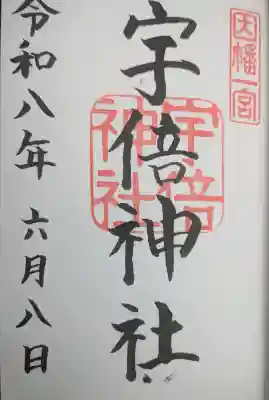 因幡一宮
宇倍神社
宇倍神社
令和八年 六月八日